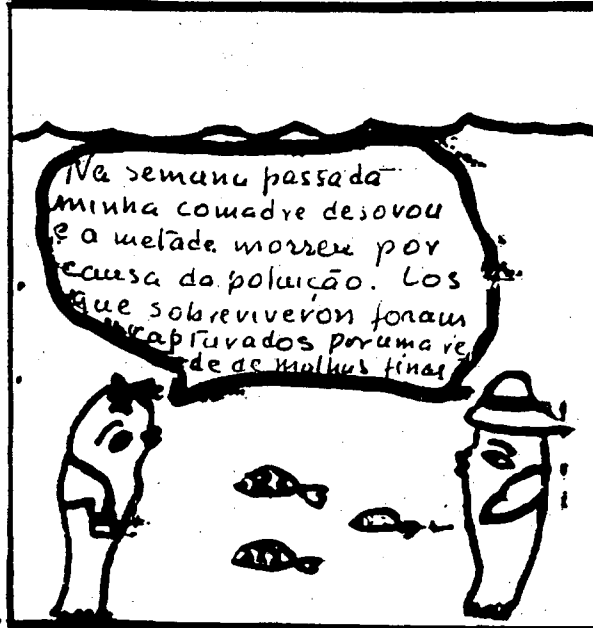 Na semana passada
minha comadre desovou
e a metade morreu por
causa da poluição. Los
que sobreviveron foram
capturados por uma re
de de malhas finas